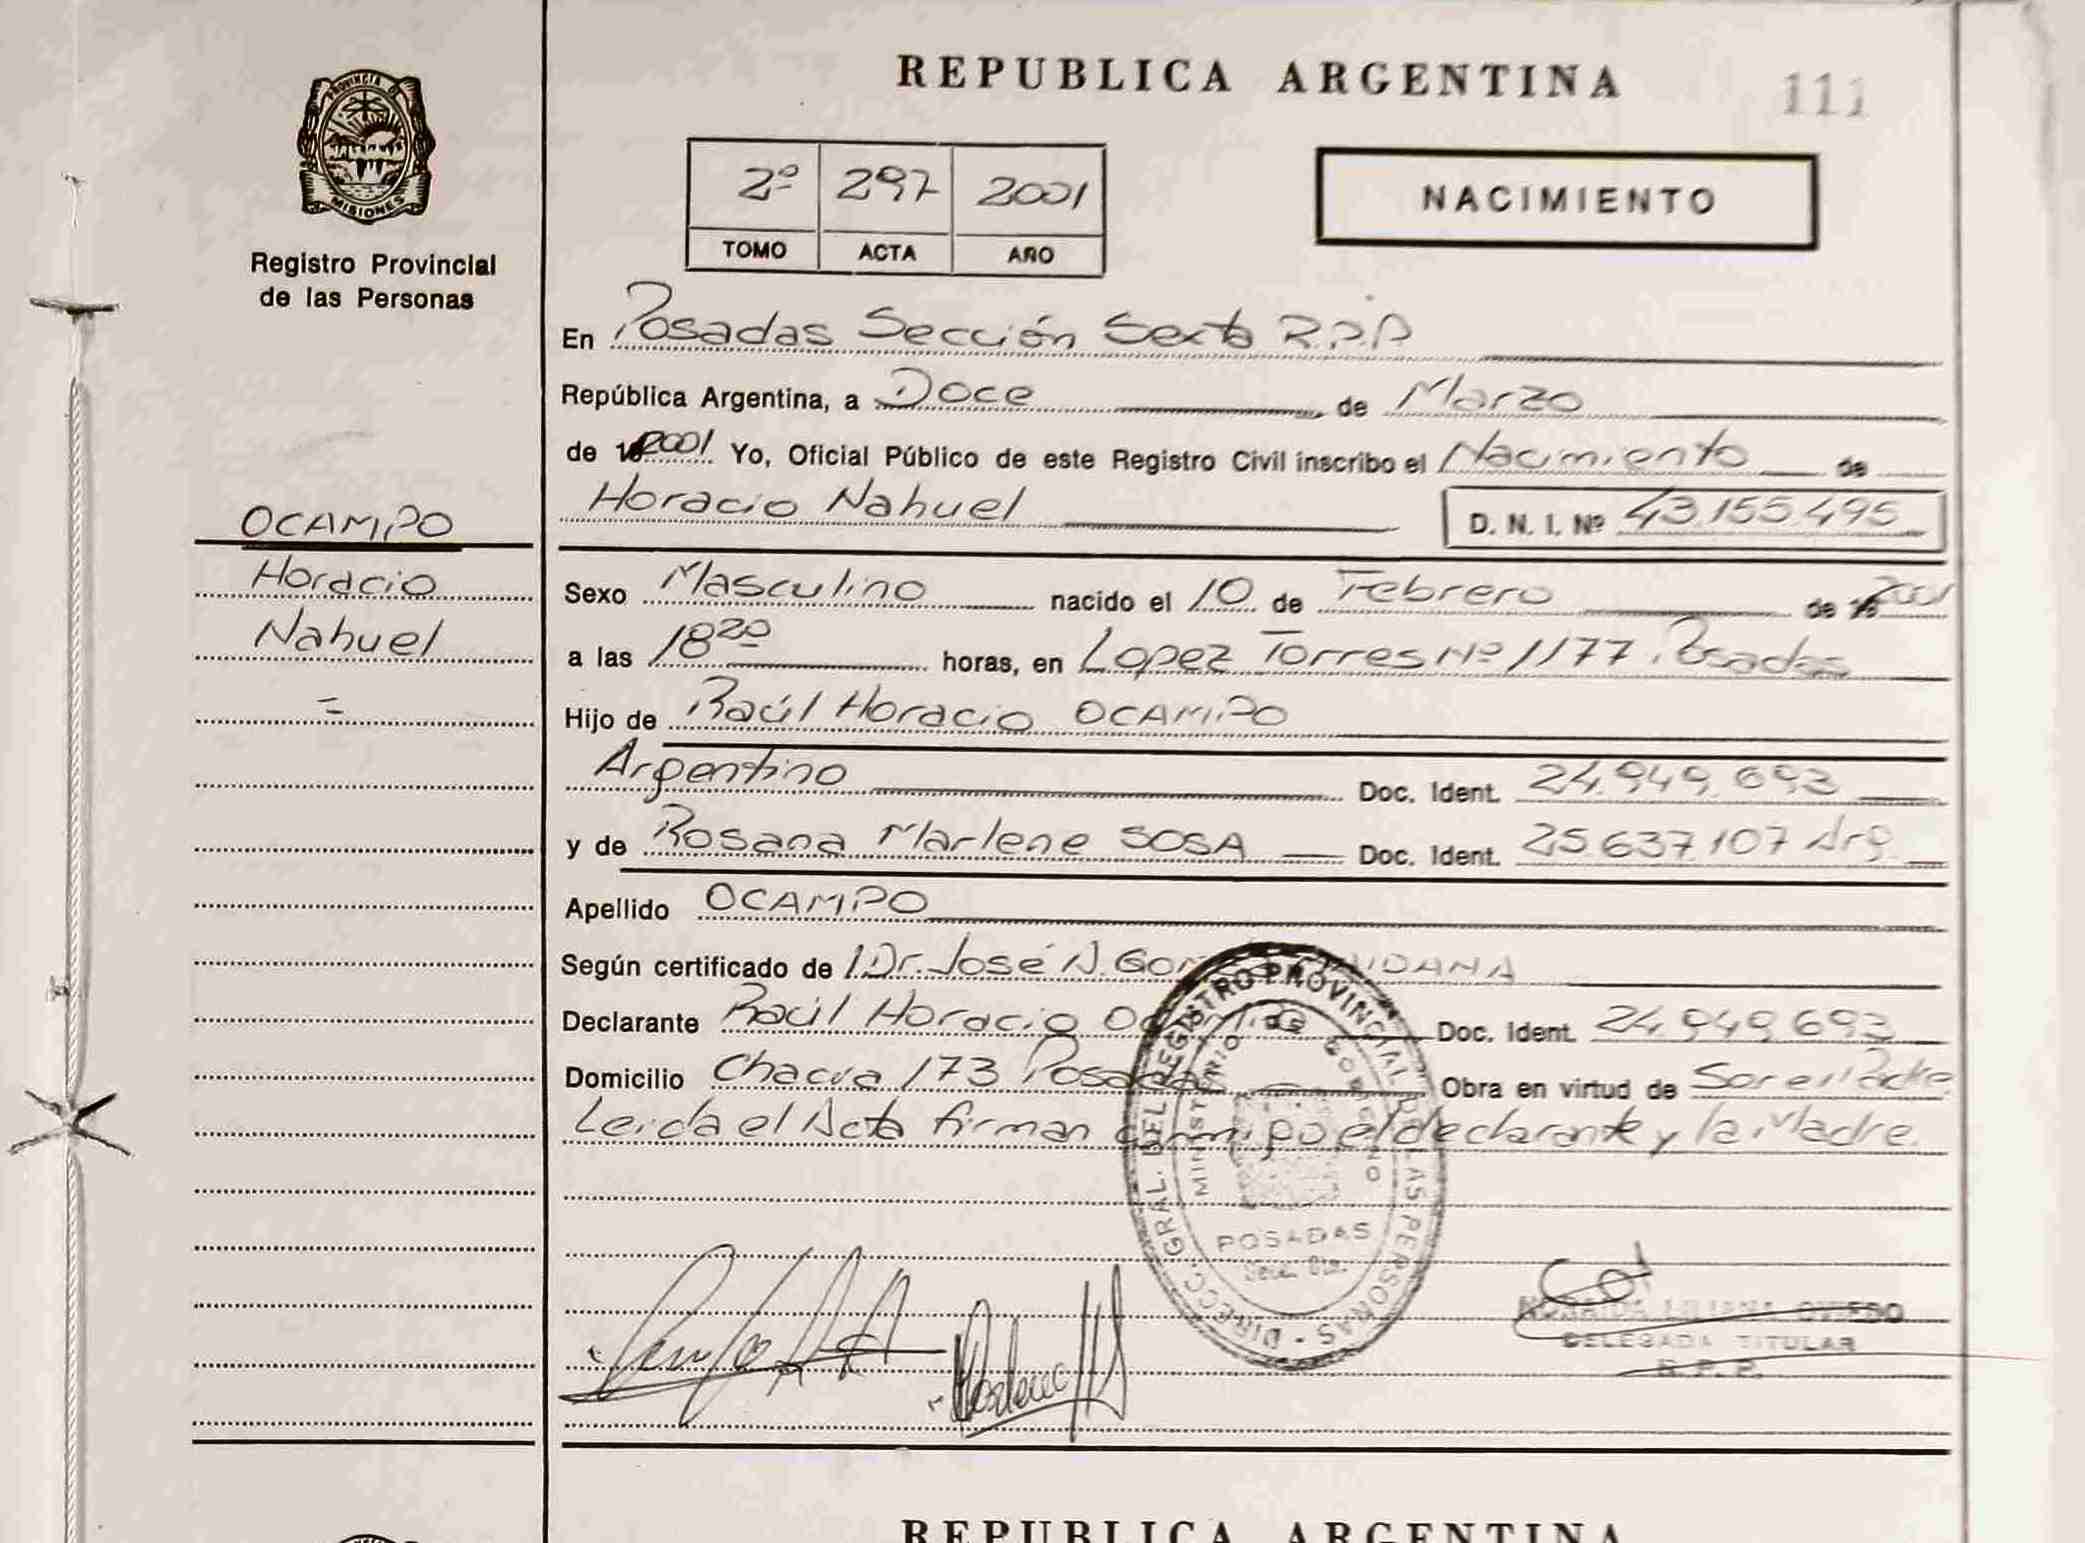 REPUBLICA ARGENTINA
111
PROVINCIA D
MISIONES
Registro Provincial
de las Personas
2º 297 2001
TOMO ACTA AÑO
NACIMIENTO
En Posadas Sección Sexta R.P.P
República Argentina, a Doce de Marzo
de 2001 Yo, Oficial Público de este Registro Civil inscribo el Nacimiento de
Horacio Nahuel D. N. I. Nº 43.155.495
OCAMPO
Horacio
Nahuel
=
Sexo Masculino nacido el 10 de Febrero de 2001
a las 18 20 horas, en Lopez Torres Nº 1177. Posadas
Hijo de Raúl Horacio OCAMPO
Argentino Doc. Ident. 24.949.693
y de Rosana Marlene SOSA Doc. Ident. 25.637.107 Arg.
Apellido OCAMPO
Según certificado de Dr. José N.
Declarante Raúl Horacio Doc. Ident. 24.949.693
Domicilio Chacra 173 Posadas Obra en virtud de Ser el Padre
Leida el Acta firman el declarante y la Madre.
DIRECC. GRAL. DEL REGISTRO PROVINCIAL DE LAS PERSONAS
MINISTERIO DE GOBIERNO
POSADAS
Marlene
LILIANA OVIEDO
DELEGADA TITULAR
R.P.P.
REPUBLICA ARGENTINA